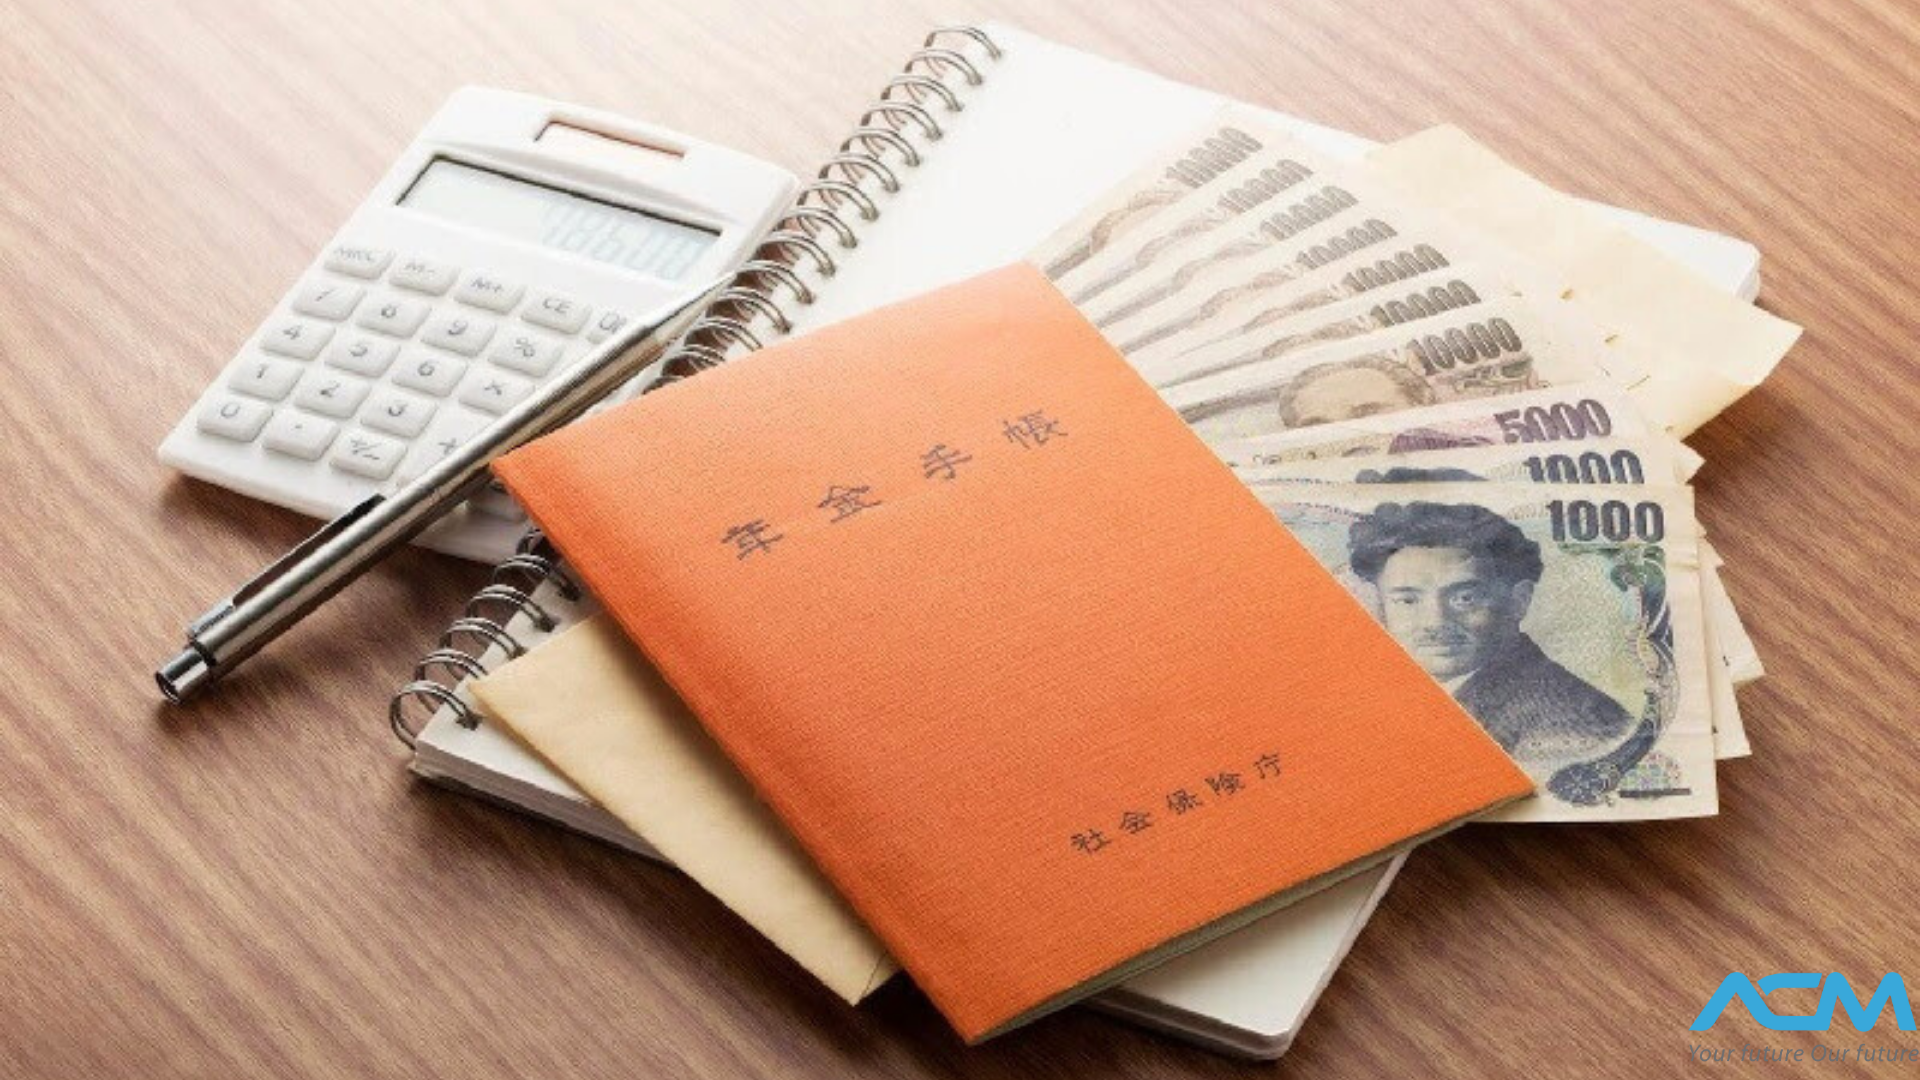 MRC M- M+ CE
7 8 9 %
4 5 6 ×
1 2 3 +
0 · +/-
10000
10000
10000
10000
10000
10000
10000
5000
1000
1000
年金手帳
社会保険庁
ACM
Your future Our future